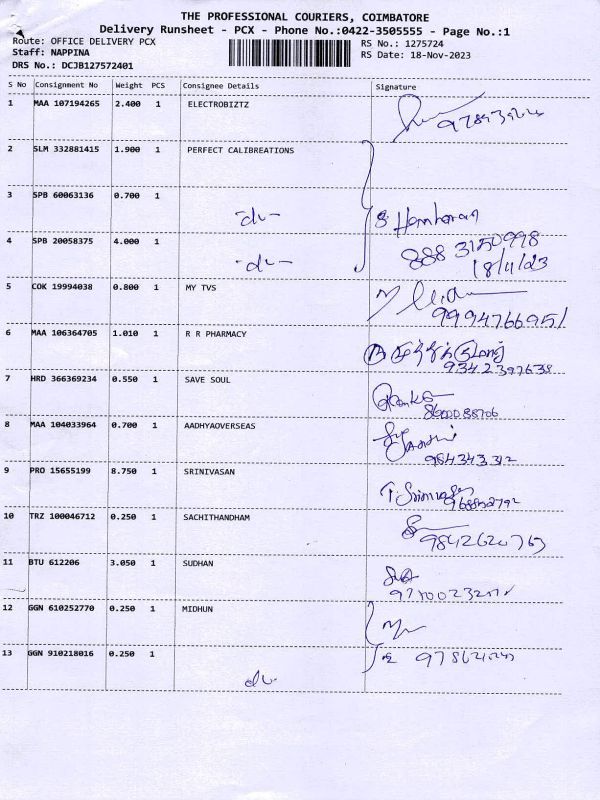 THE PROFESSIONAL COURIERS, COIMBATORE
Delivery Runsheet - PCX - Phone No.:0422-3505555 - Page No.:1
Route: OFFICE DELIVERY PCX RS No.: 1275724
Staff: NAPPINA RS Date: 18-Nov-2023
DRS No.: DCJB127572401
S No Consignment No Weight PCS Consignee Details Signature
1 MAA 107194265 2.400 1 ELECTROBIZTZ
2 SLM 332881415 1.900 1 PERFECT CALIBREATIONS
3 SPB 60063136 0.700 1 -do-
4 SPB 20058375 4.000 1 -do-
888 3150998
18/11/23
5 COK 19994038 0.800 1 MY TVS
9994766951
6 MAA 106364705 1.010 1 R R PHARMACY
9342397638
7 HRD 366369234 0.550 1 SAVE SOUL
8 MAA 104033964 0.700 1 AADHYAOVERSEAS
9 PRO 15655199 8.750 1 SRINIVASAN
T. Srinivasan
10 TRZ 100046712 0.250 1 SACHITHANDHAM
9842620763
11 BTU 612206 3.050 1 SUDHAN
12 GGN 610252770 0.250 1 MIDHUN
13 GGN 910218016 0.250 1
do-